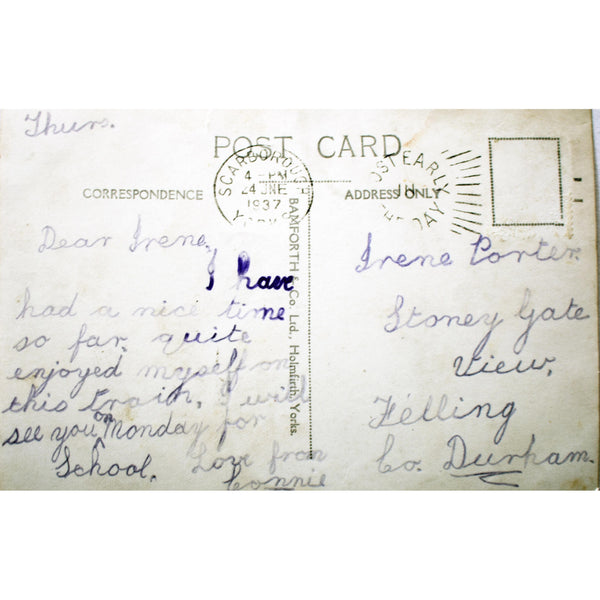 Thurs.
POST CARD
CORRESPONDENCE
ADDRESS ONLY
SCARBOROUGH
4 - PM
24 JNE
1937
YORKS
POST EARLY
IN
THE DAY
BAMFORTH & Co. Ltd., Holmfirth, Yorks.
Dear Irene,
I have
had a nice time
so far, quite
enjoyed myself on
this train, I will
see you on Monday for
School. Love from
Connie
Irene Porter.
Stoney Gate
View,
Felling
Co. Durham.